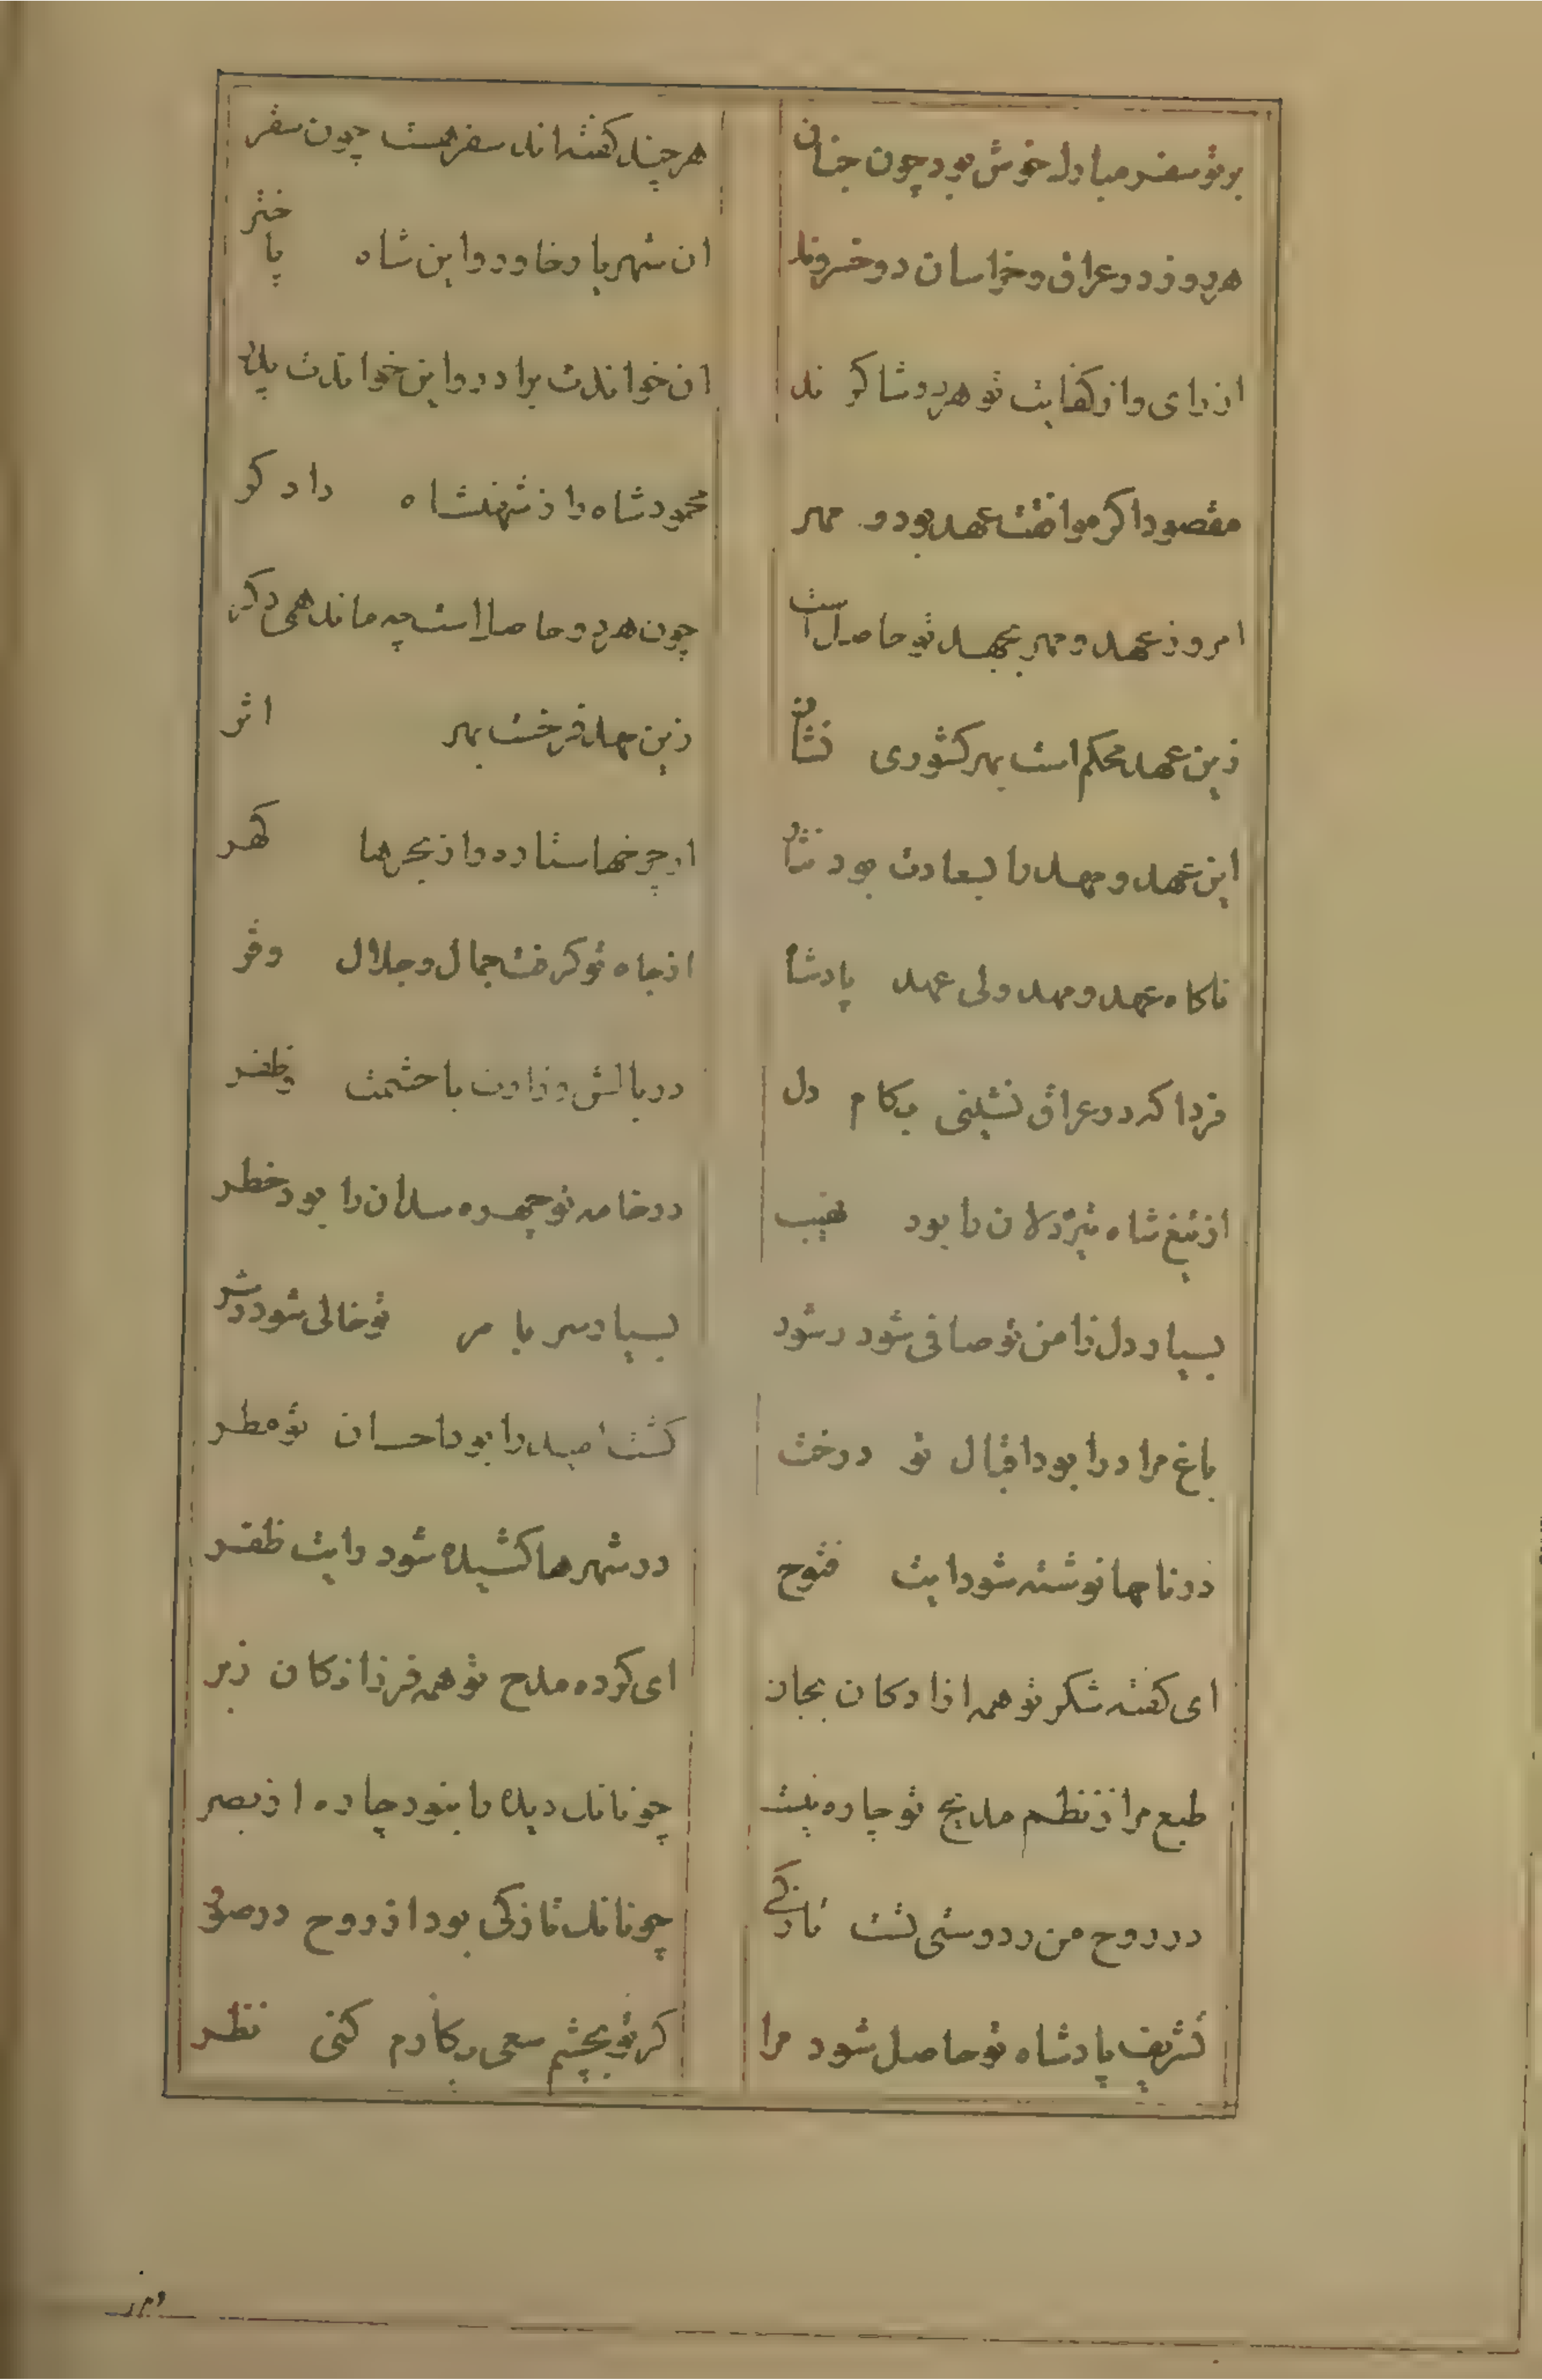 بر تو سفر مبادل خوش بود چون جنان هر چند کفته اند سفر هست چون سقر
هر دو ز در عراق و خراسان دو خسروند ان شهریار خاور و این شاه باختر
از رای و از کفایت تو هر دو شاکرند ان خواندت برادر و این خواندت پدر
مقصود اکر موافقت عهد بود و مهر محمود شاه را ز شهنشاه دادکر
امروز عهد و مهر بجهد تو حاصل است چون هر دو حاصل است چه ماند همی دکر
زین عهد محکم است بهر کشوری نشان زین مهد فرخست بهر اثر
این عهد و مهد را بسعادت بود نثار از چرخها ستاره و از بحرها کهر
ناکاه عهد و مهد ولی عهد پادشا از جاه تو کرفت جمال و جلال و فر
فردا که در عراق نشینی بکام دل در بالش وزارت با حشمت و ظفر
از تیغ شاه تیزدلان را بود نهیب در خامه تو چهره سران را بود خطر
بسیار دل ز امن تو صافی شود ز شور بسیار سر با مر تو خالی شود ز شر
باغ مراد را بود اقبال تو درخت کشت امید را بود احسان تو مطر
در نامها نوشته شود ایت فتوح در شهرها کشیده شود رایت ظفر
ای کفته شکر تو همه ازادکان بجان ای کرده مدح تو همه فرزانکان زبر
طبع مرا ز نظم مدیح تو چاره نیست چونانک دیده را بنود چاره از بصر
در روح من ز دوستی تست تازکی چونانک تازکی بود از روح در صور
تشریف پادشاه تو حاصل شود مرا کر تو بچشم سعی بکارم کنی نظر